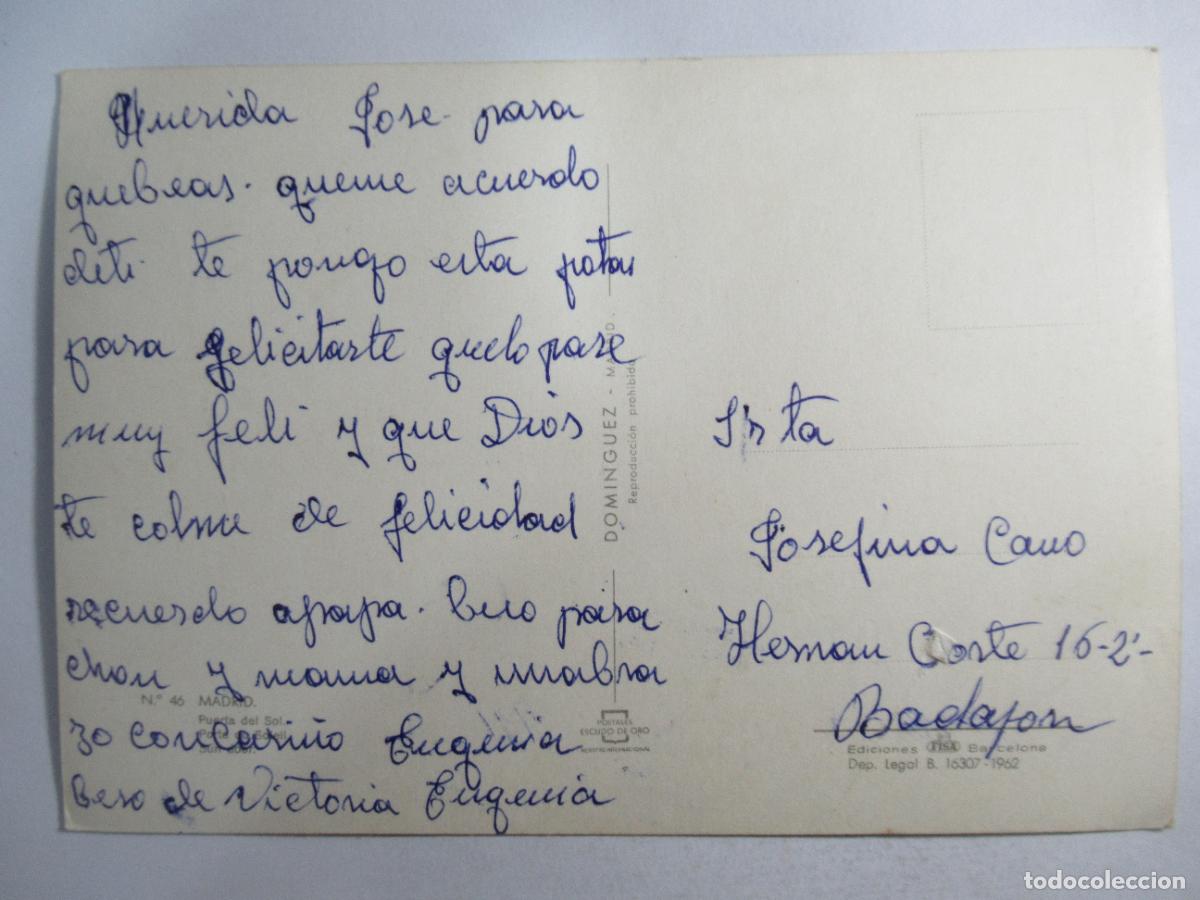 Querida Jose para
quebeas. queme acuerdo
deti. te pongo esta
para felicitarte quelo pase
muy feli y que Dios
te colme de felicidad
recuerdo apapa. beso para
chon y mama y unabra
zo concariño Eugenia
beso de Victoria Eugenia
Srta
Josefina Cano
Hernan Corte 16-2º-
Badajoz
DOMINGUEZ - MADRID.
Reproducción prohibida
Nº 46 MADRID.
Puerta del Sol.
Porte du Soleil
Sun Gate.
POSTALES
ESCUDO DE ORO
Ediciones FISA Barcelona
Dep. Legal B. 16307-1962
todocoleccion